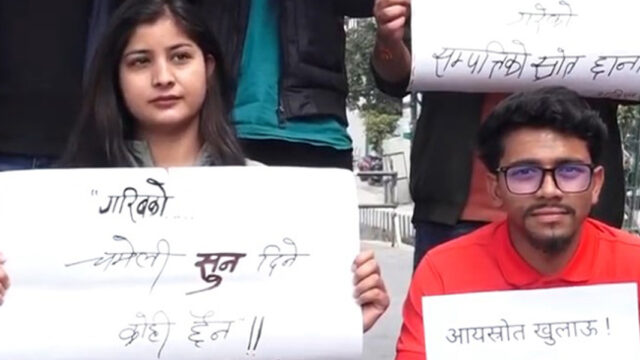 गरेको
सम्पत्तिको स्रोत छान
"गरिबको....
चमेली सुन दिने
कोही छैन"!!
आयस्रोत खुलाऊ !